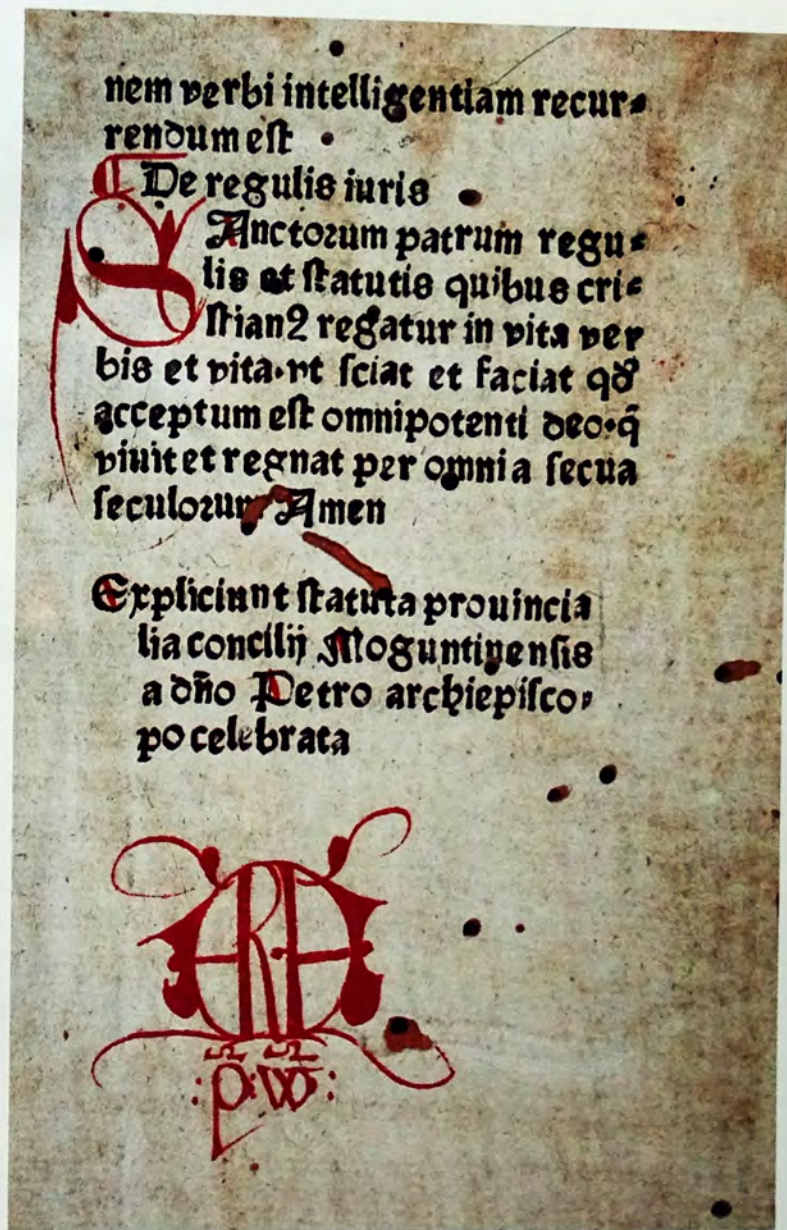 nem verbi intelligentiam recur⸗
rendum est
¶ De regulis iuris
SAnctoꝛum patrum regu⸗
lis et statutis quibus cri⸗
stianꝰ regatur in vita ver
bis et vita·vt sciat et faciat qđ
acceptum est omnipotenti deo·q̄
viuit et regnat per omnia secua
seculoꝛum Amen
Expliciunt statuta prouincia
lia concilij Moguntinensis
a dño Petro archiepisco⸗
po celebrata
:p:w: